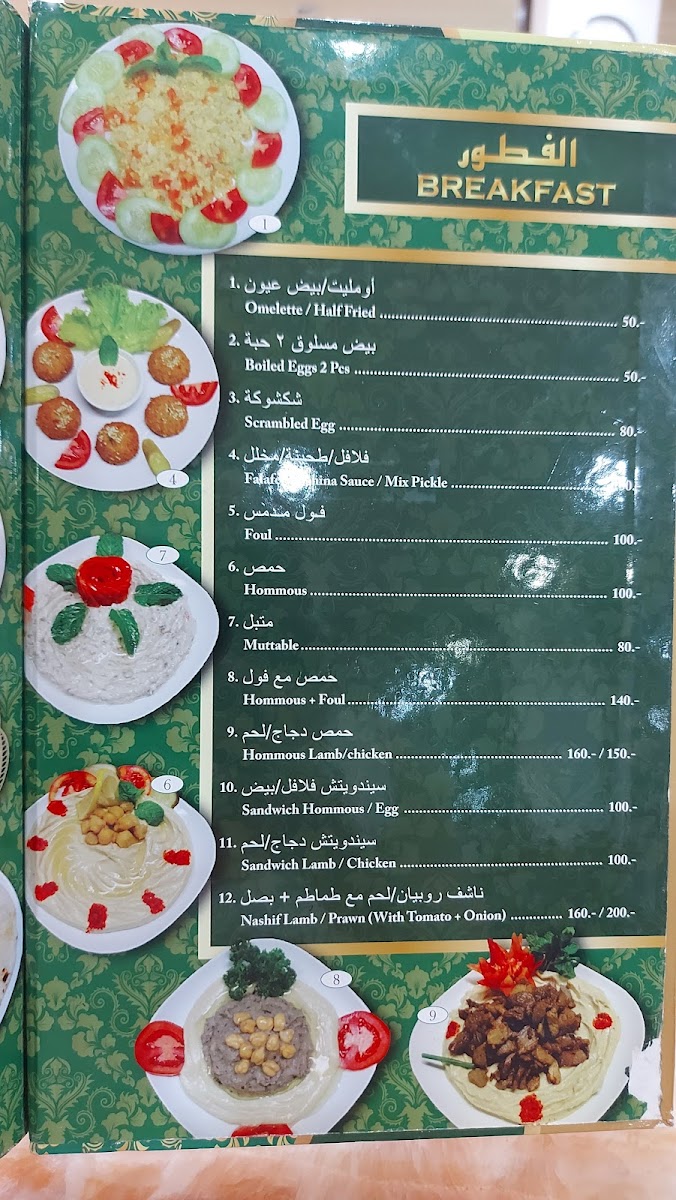 الفطور
BREAKFAST
1. أومليت/بيض عيون
Omelette / Half Fried ........ 50.-
2. بيض مسلوق ٢ حبة
Boiled Eggs 2 Pcs ........ 50.-
3. شكشوكة
Scrambled Egg ........ 80.-
4. فلافل/طحينة/مخلل
Sauce / Mix Pickle ........
5. فول مدمس
Foul ........ 100.-
6. حمص
Hommous ........ 100.-
7. متبل
Muttable ........ 80.-
8. حمص مع فول
Hommous + Foul ........ 140.-
9. حمص دجاج/لحم
Hommous Lamb/chicken ........ 160.- / 150.-
10. سيندويتش فلافل/بيض
Sandwich Hommous / Egg ........ 100.-
11. سيندويتش دجاج/لحم
Sandwich Lamb / Chicken ........ 100.-
12. ناشف روبيان/لحم مع طماطم + بصل
Nashif Lamb / Prawn (With Tomato + Onion) ........ 160.- / 200.-
1
4
7
6
8
9